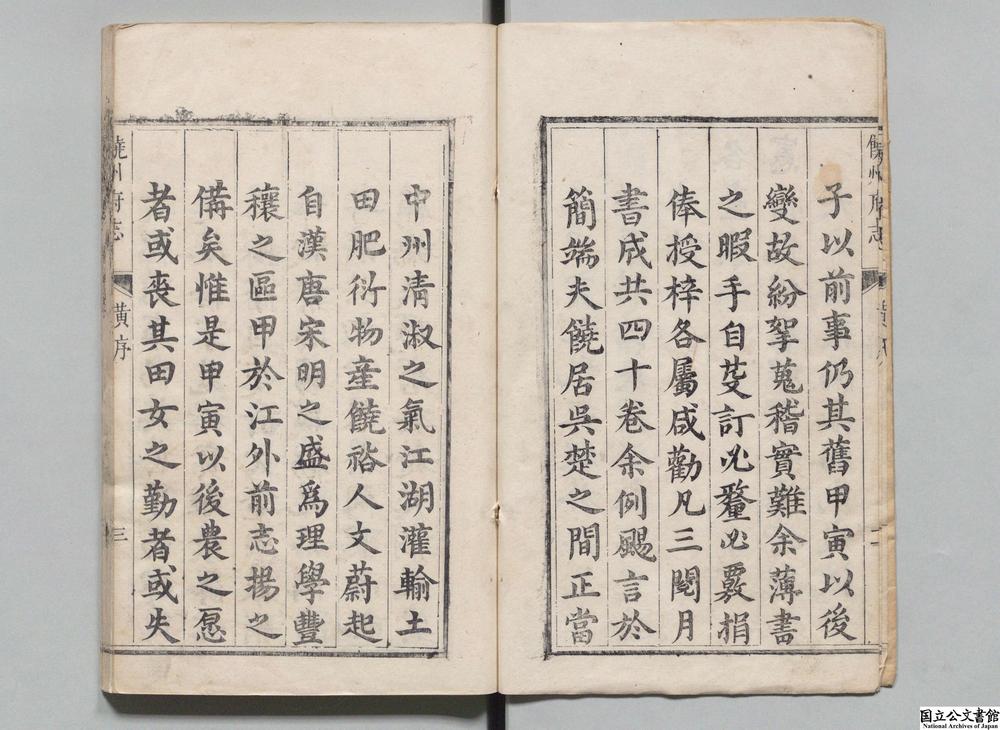 饒州府志
二
子以前事仍其舊甲寅以後
變故紛挐蒐稽實難余薄書
之暇手自芟訂必釐必覈捐
俸授梓各屬咸勸凡三閱月
書成共四十卷余例颺言於
簡端夫饒居吳楚之間正當
中州清淑之氣江湖灌輸土
田肥衍物產饒裕人文蔚起
自漢唐宋明之盛爲理學豐
穰之區甲於江外前志揚之
備矣惟是甲寅以後農之愿
者或喪其田女之勤者或失
饒州府志
黃序
三
国立公文書館
National Archives of Japan